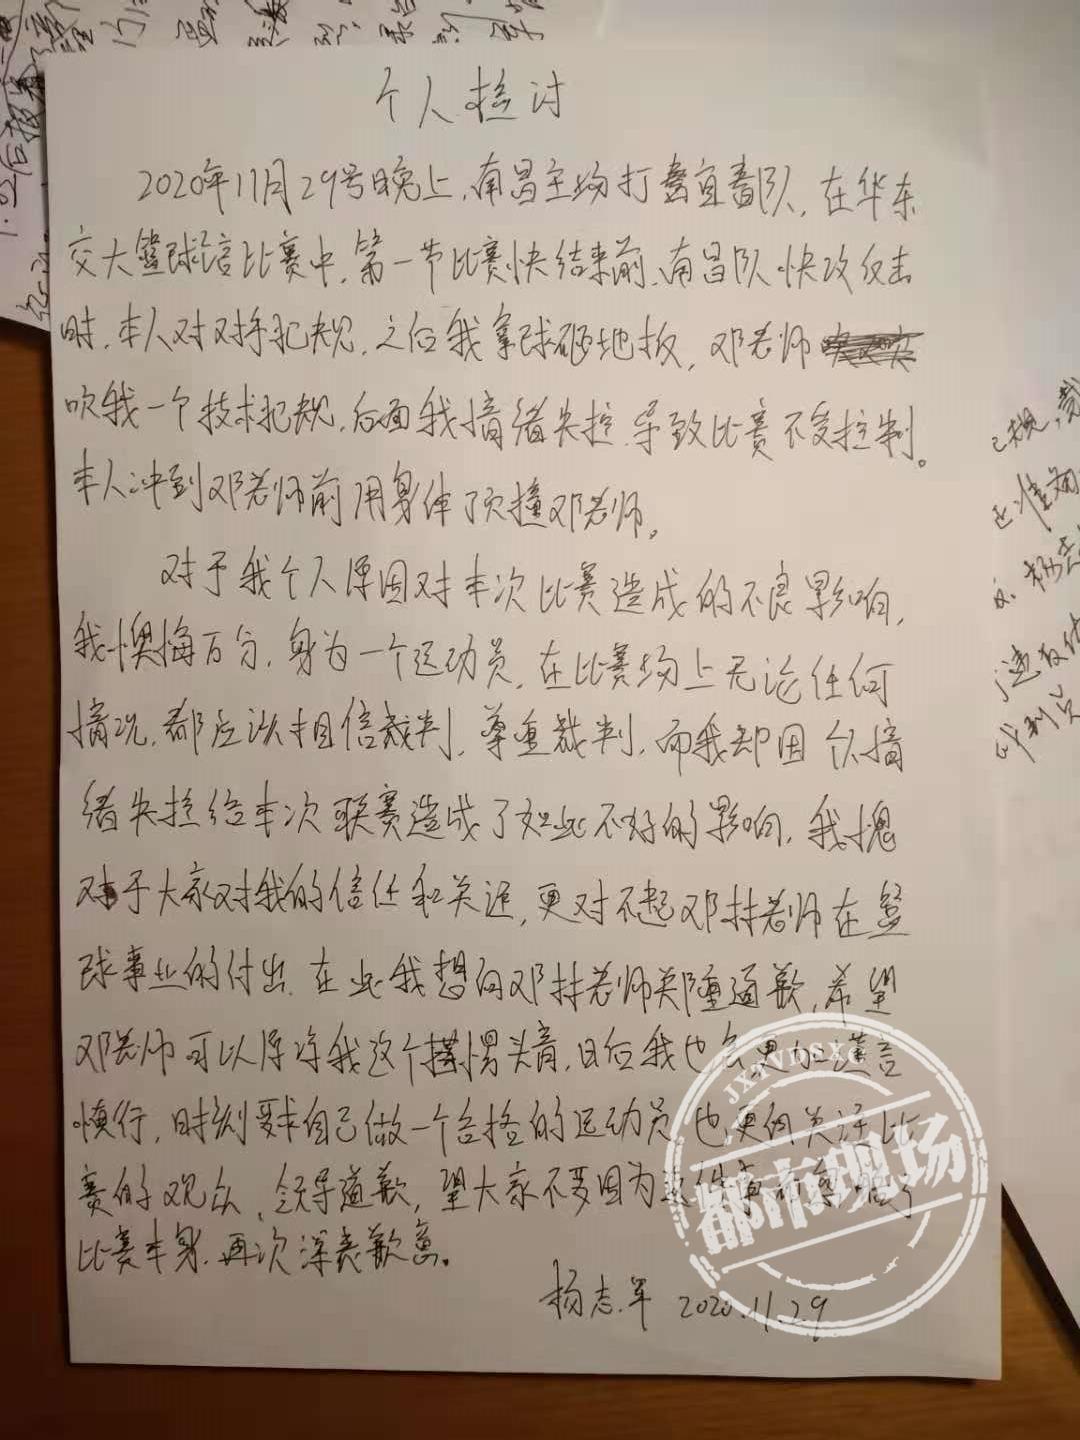 个人检讨
2020年11月29号晚上,南昌主场打宜春队,在华东
交大篮球馆比赛中,第一节比赛快结束前,南昌队快攻反击
时,本人对对手犯规,之后我拿球砸地板,邓老师
吹我一个技术犯规,后面我情绪失控,导致比赛不受控制。
本人冲到邓老师前用身体顶撞邓老师。
对于我个人原因对本次比赛造成的不良影响,
我懊悔万分,身为一个运动员,在比赛场上无论任何
情况,都应该相信裁判,尊重裁判,而我却因个人情
绪失控给本次联赛造成了如此不好的影响,我愧
对于大家对我的信任和关注,更对不起邓林老师在篮
球事业的付出,在此我想向邓林老师郑重道歉,希望
邓老师可以原谅我这个楞头青,日后我也会更加谨言
慎行,时刻要求自己做一个合格的运动员,也更向关注比
赛的观众,领导道歉,望大家不要因为这件事而忽略了
比赛本身,再次深表歉意。
杨志军 2020.11.29
都市现场